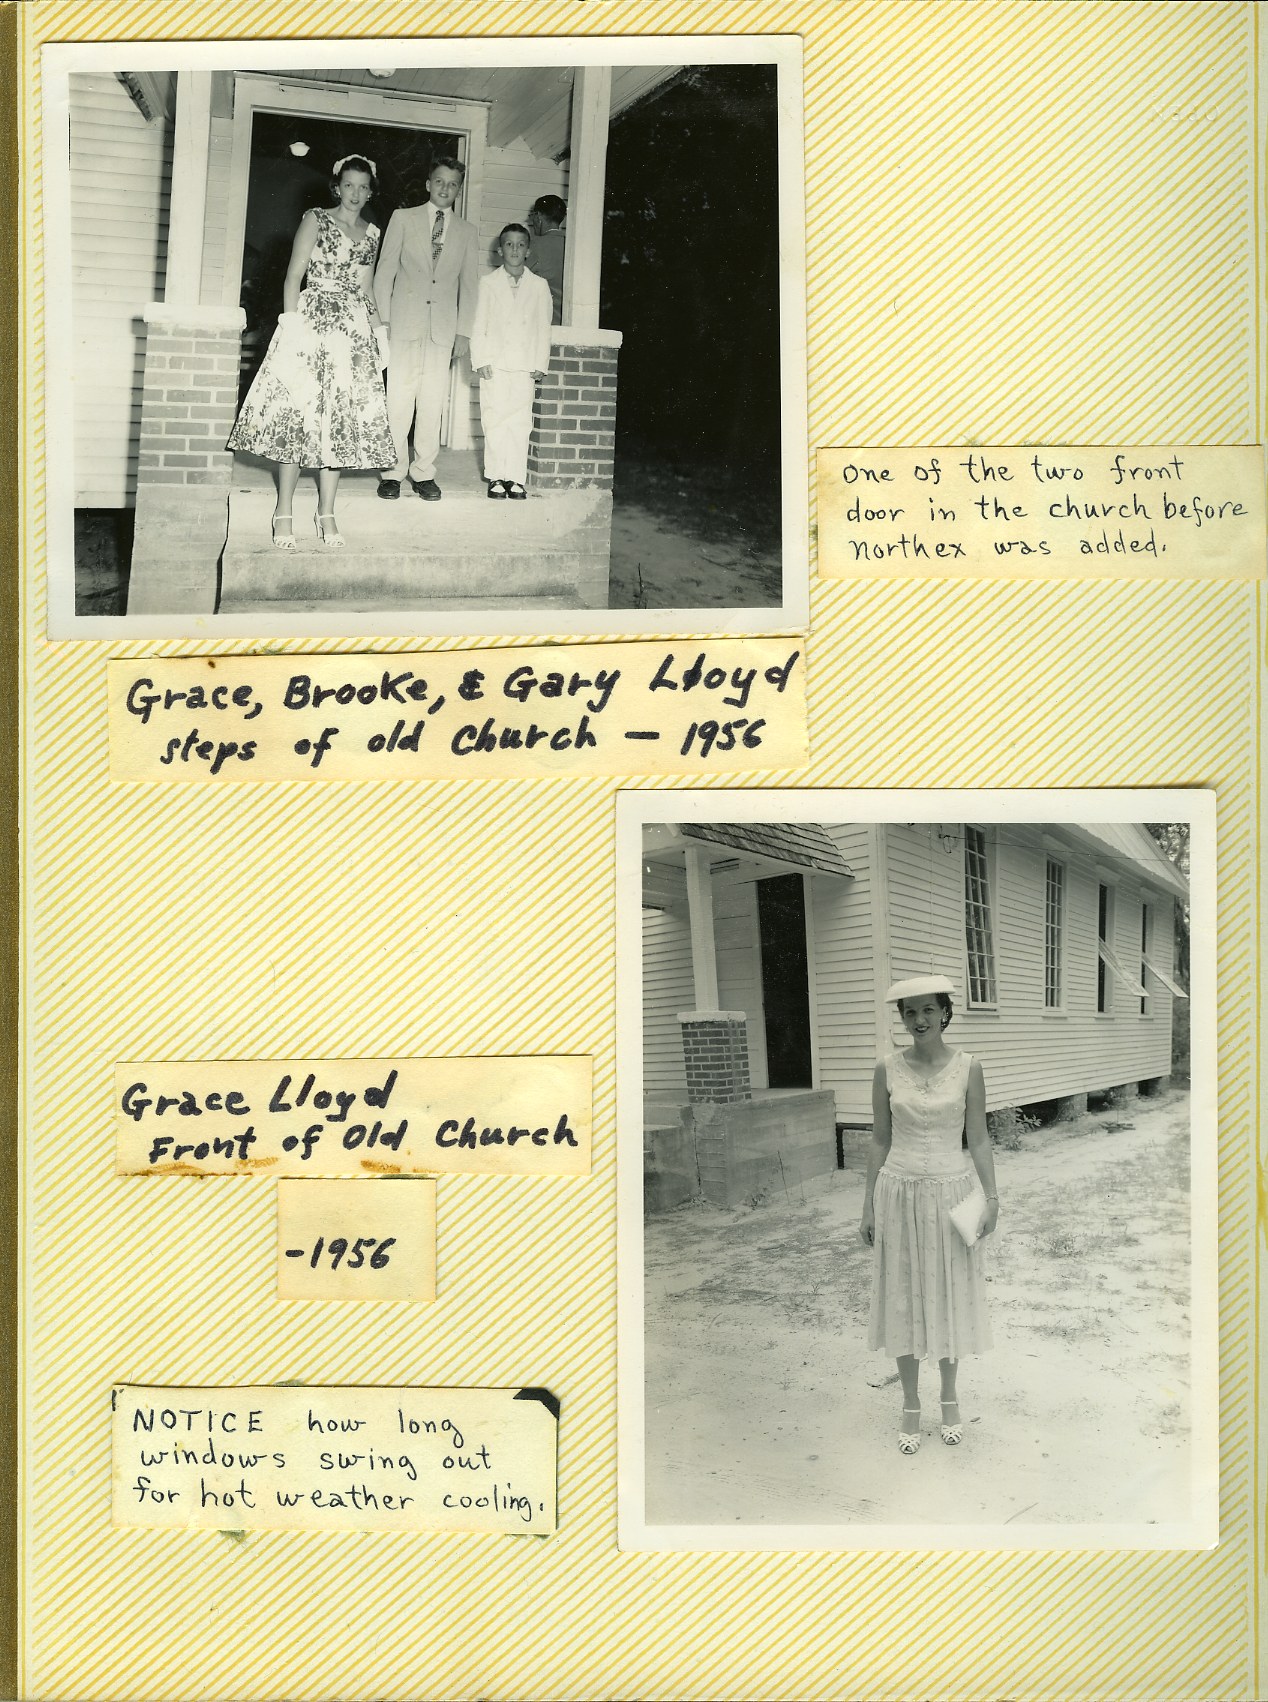 One of the two front
door in the church before
northex was added.
Grace, Brooke, & Gary Lloyd
steps of old Church - 1956
Grace Lloyd
Front of Old Church
-1956
NOTICE how long
windows swing out
for hot weather cooling.